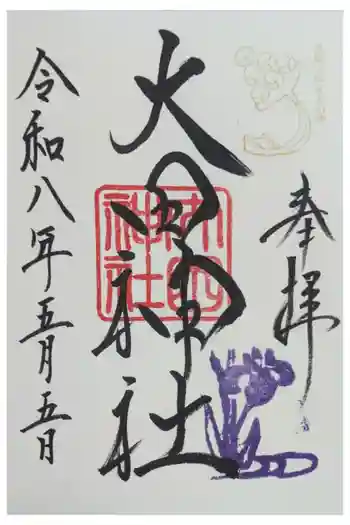 奉拝
大田神社
大田
神社
令和八年五月五日